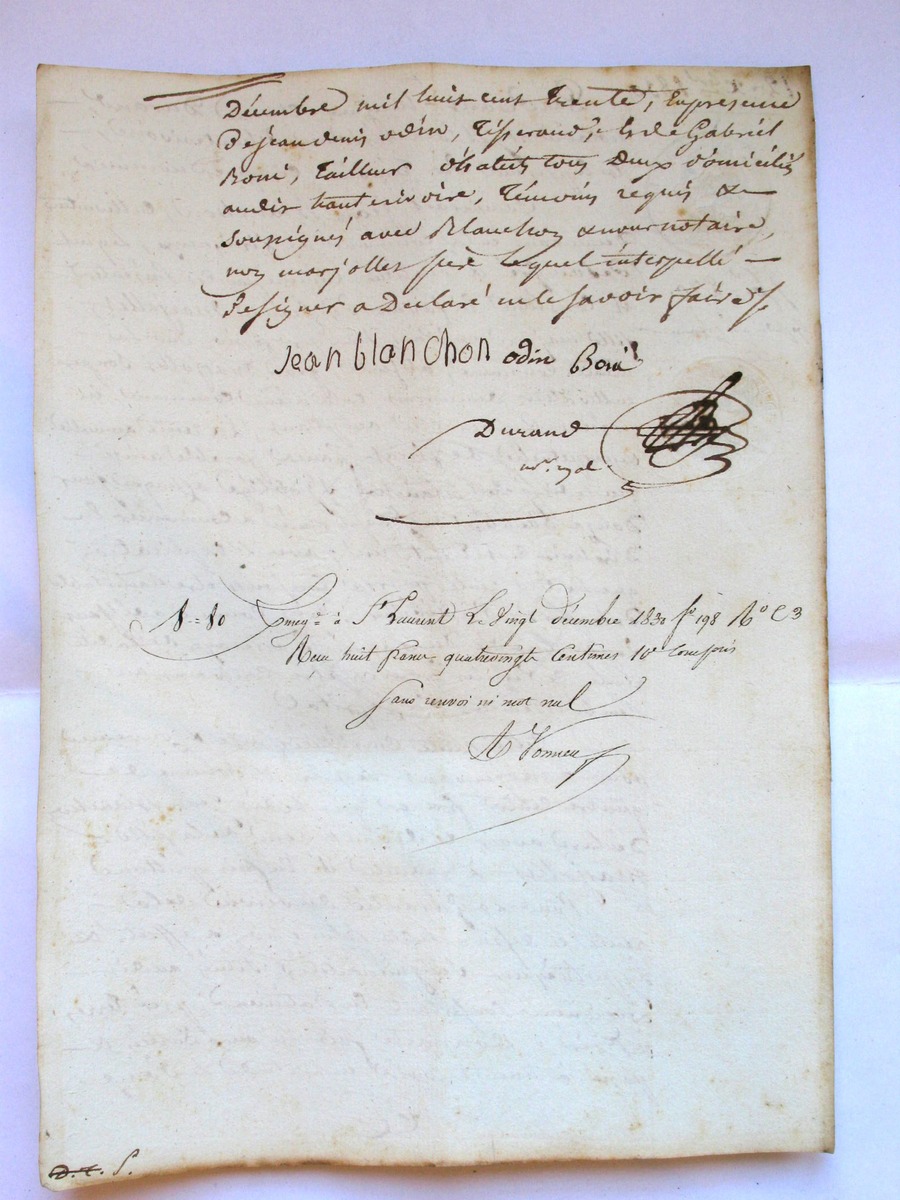 Décembre mil huit cent trente, En presence
De jean denis odin, Tisserand, Et de Gabriel
Boné, tailleur d'habits tous Deux domiciliés
audit hauterivoire, Témoins requis &
soussignés avec Blanchon & nous notaire,
non marjollet père lequel interpellé
De signer a Declaré ne le savoir faire
jean blanchon odin Boné
Durand
nre. royal
8=80 Enregé à St Laurent Le Vingt décembre 1830 fo 198 Ro C 3
Reçu huit francs quatrevingts Centimes 10e Compris
sans renvoi ni mot nul
D. E. P.